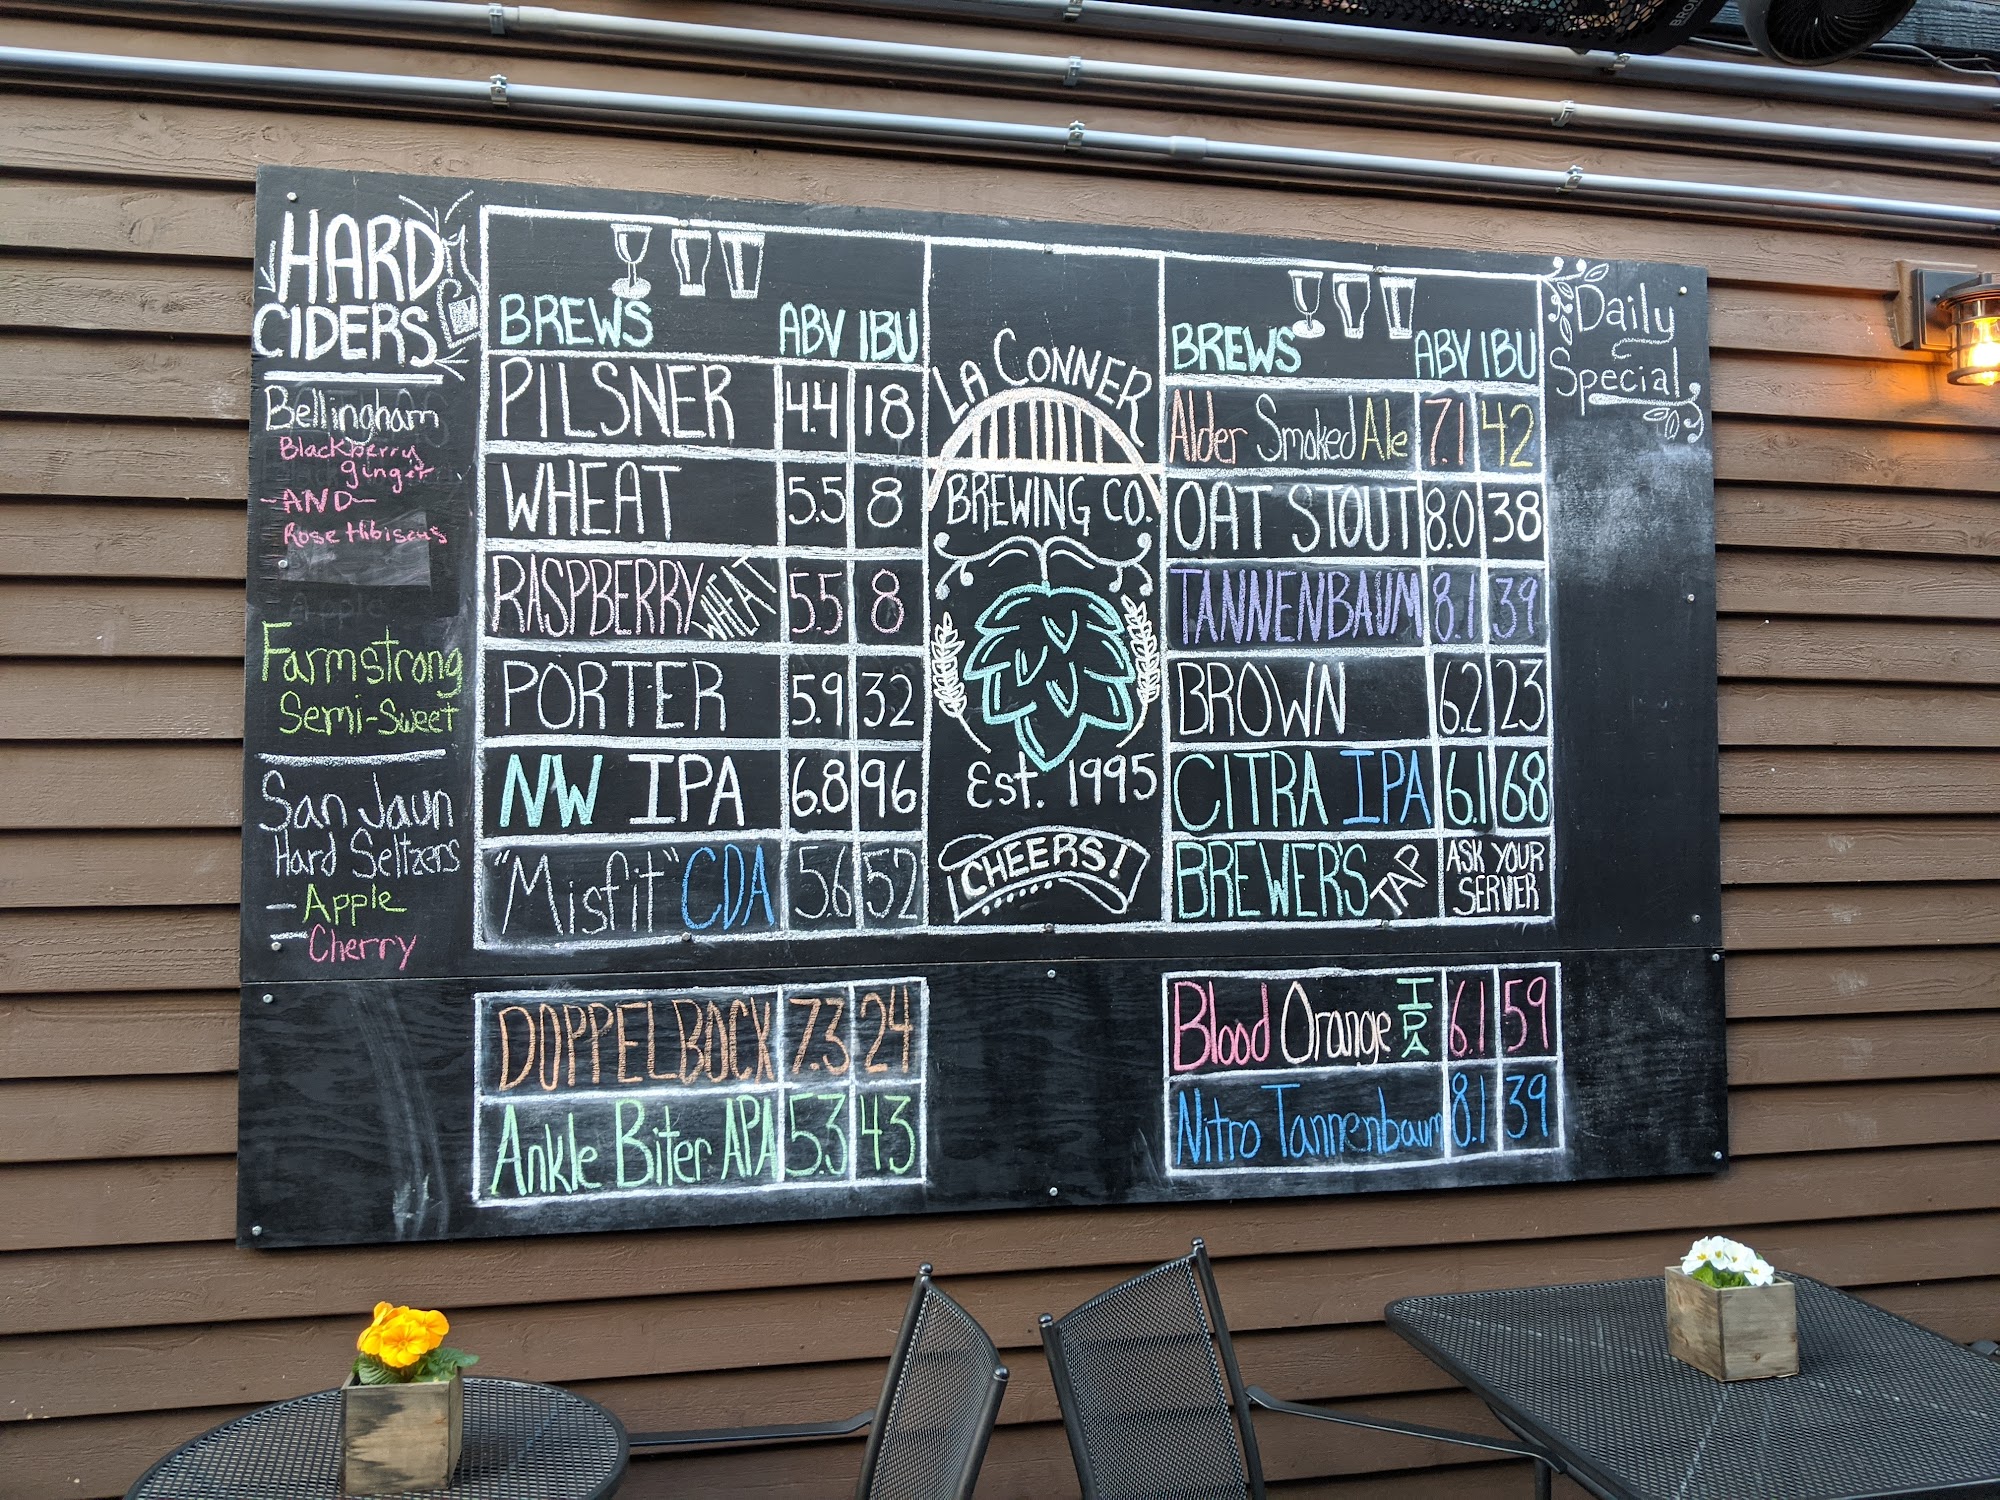 HARD
CIDERS
Bellingham
Blackberry
ginger
-AND-
Rose Hibiscus
Apple
Farmstrong
Semi-Sweet
San Jaun
Hard Seltzers
- Apple
- Cherry
BREWS ABV IBU
PILSNER 4.4 18
WHEAT 5.5 8
RASPBERRY WHEAT 5.5 8
PORTER 5.9 32
NW IPA 6.8 96
"Misfit" CDA 5.6 52
DOPPELBOCK 7.3 24
Ankle Biter APA 5.3 43
LA CONNER
BREWING CO.
Est. 1995
CHEERS!
BREWS ABV IBU
Alder Smoked Ale 7.1 42
OAT STOUT 8.0 38
TANNENBAUM 8.1 39
BROWN 6.2 23
CITRA IPA 6.1 68
BREWER'S TAP ASK YOUR
SERVER
Blood Orange IPA 6.1 59
Nitro Tannenbaum 8.1 39
Daily
Special